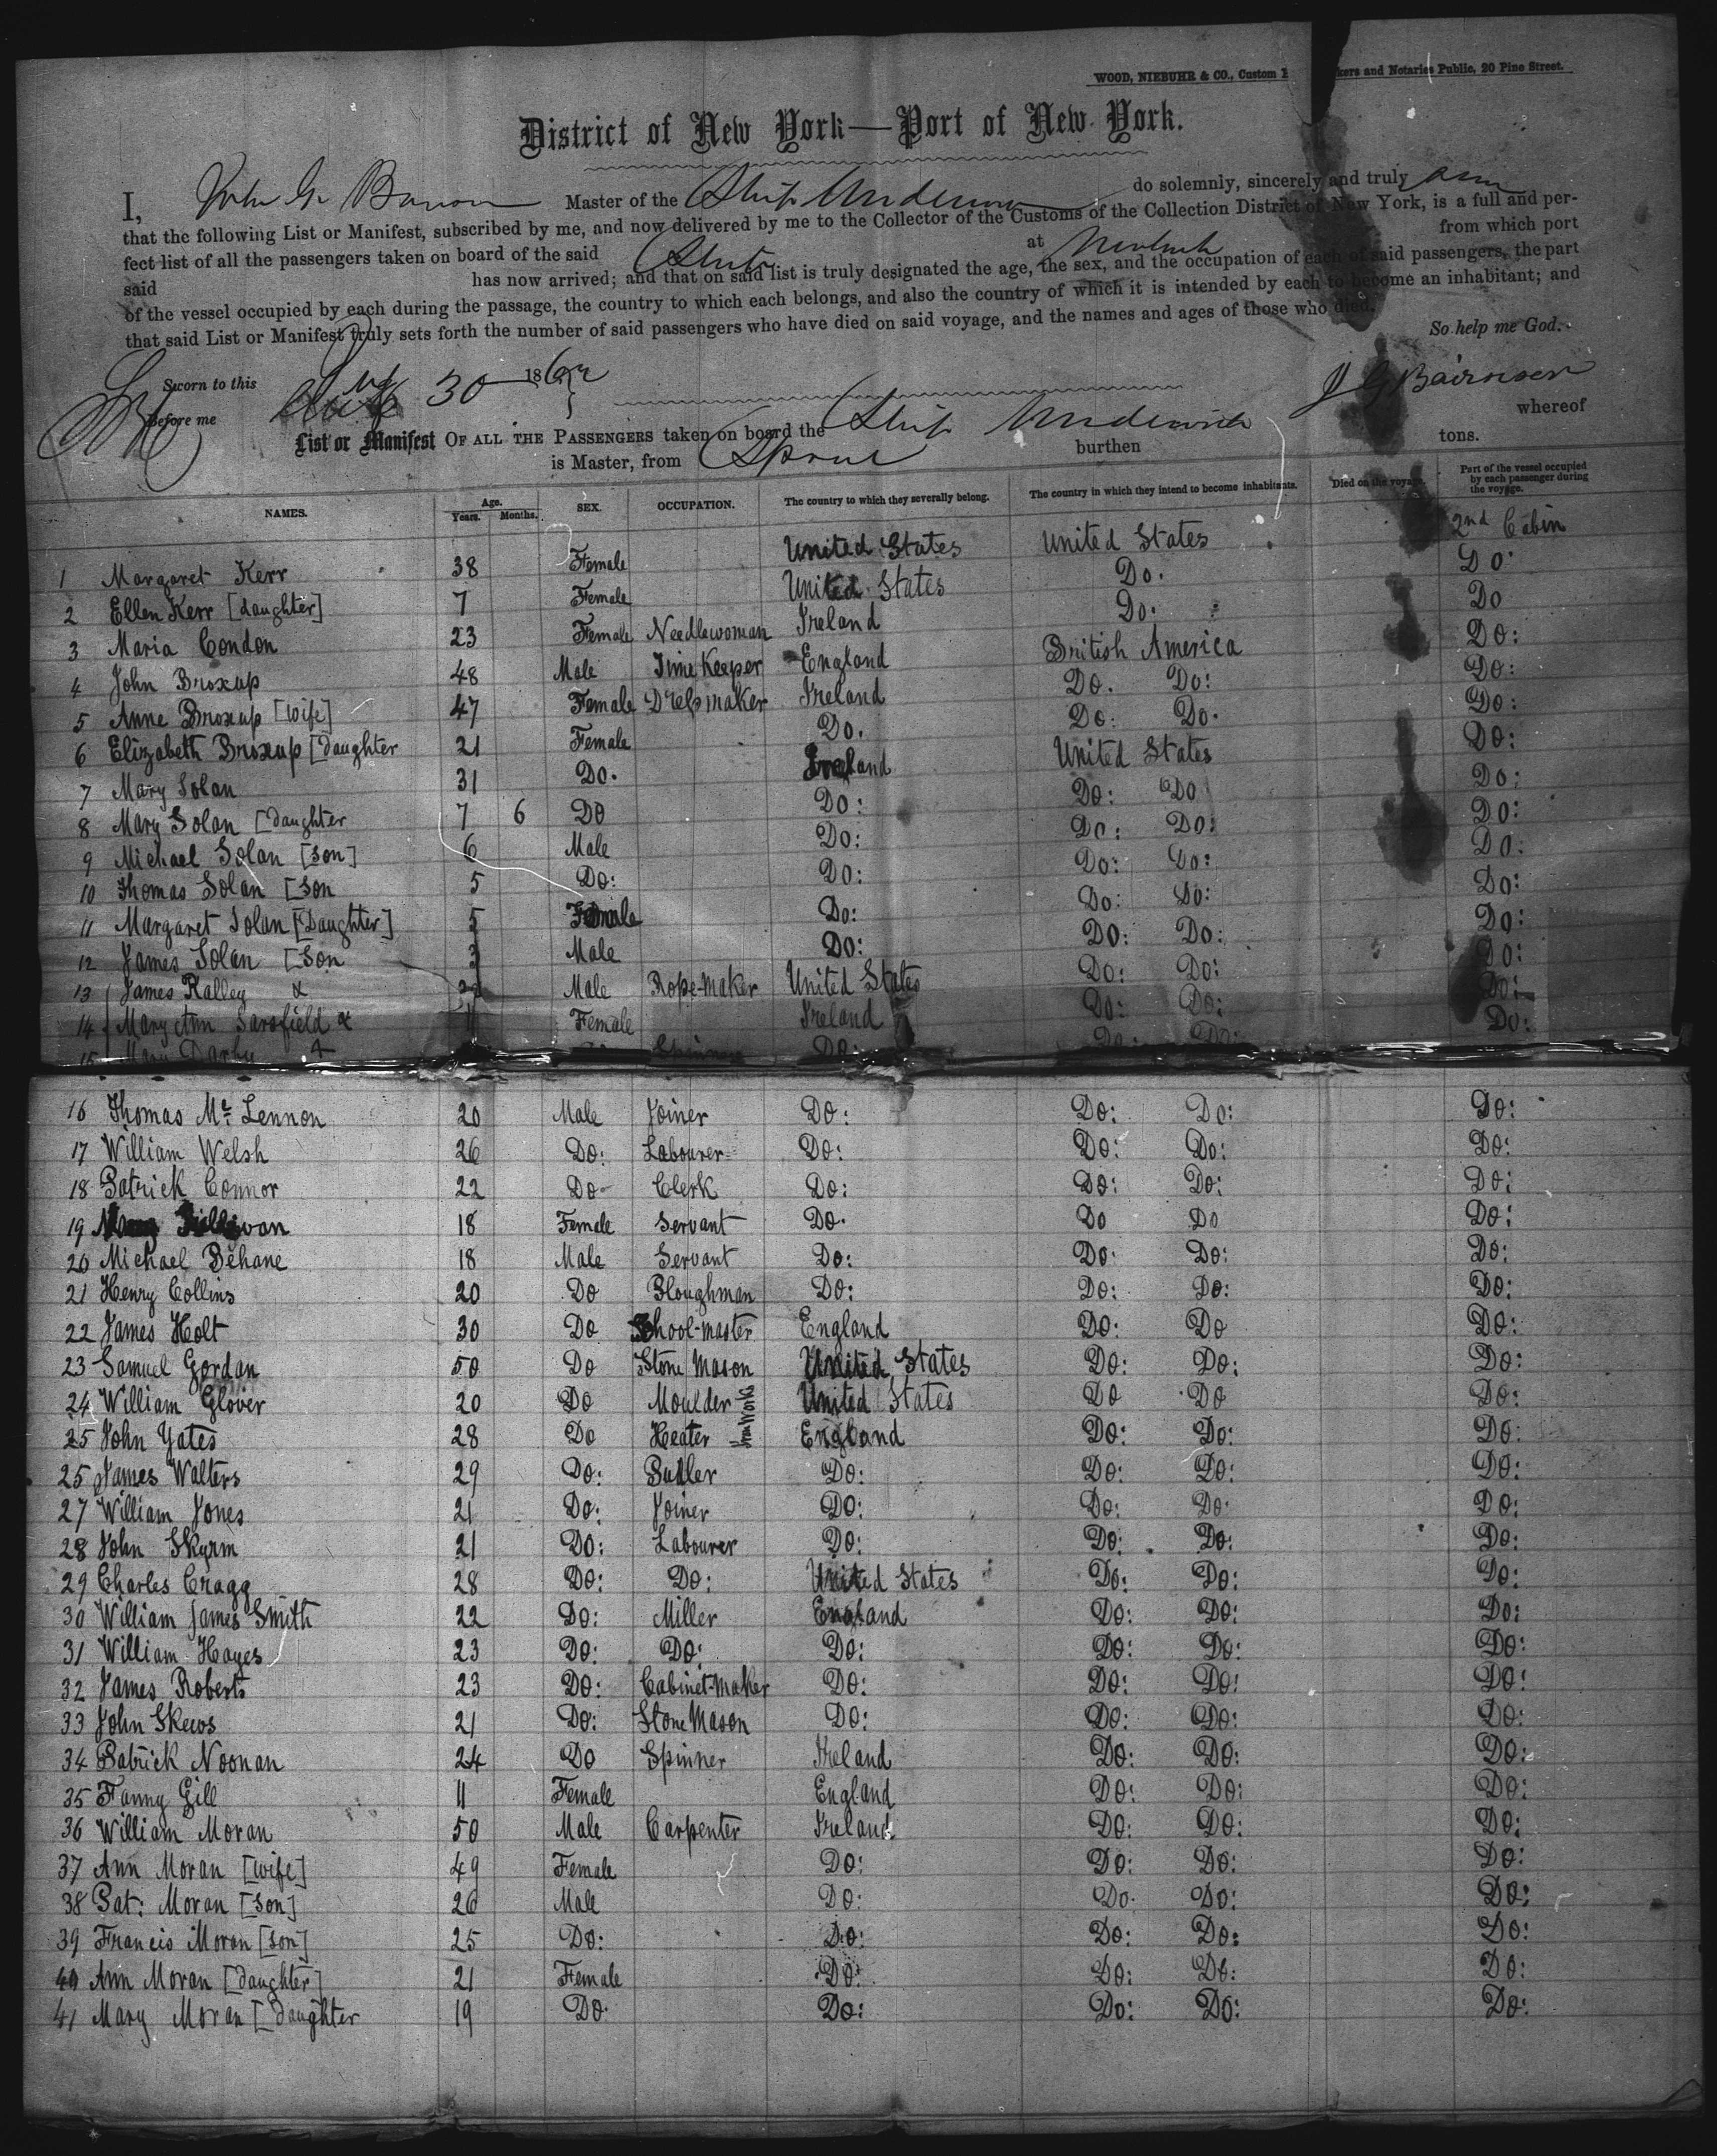 WOOD, NIEBUHR & CO., Custom kers and Notaries Public, 20 Pine Street.
District of New York—Port of New York.
I, John G. Master of the Ship do solemnly, sincerely and truly
that the following List or Manifest, subscribed by me, and now delivered by me to the Collector of the Customs of the Collection District of New York, is a full and per-
fect list of all the passengers taken on board of the said Ship at from which port
said has now arrived; and that on said list is truly designated the age, the sex, and the occupation of each of said passengers, the part
of the vessel occupied by each during the passage, the country to which each belongs, and also the country of which it is intended by each to become an inhabitant; and
that said List or Manifest truly sets forth the number of said passengers who have died on said voyage, and the names and ages of those who died.
So help me God.
Sworn to this 30 186
Before me
List or Manifest OF ALL THE PASSENGERS taken on board the Ship whereof
is Master, from burthen tons.
NAMES. Age. Years. Months. SEX. OCCUPATION. The country to which they severally belong. The country in which they intend to become inhabitants. Died on the voyage. Part of the vessel occupied by each passenger during the voyage.
1 Margaret Kerr 38 Female United States United States 2nd Cabin
2 Ellen Kerr [daughter] 7 Female United States Do. Do
3 Maria Condon 23 Female Needlewoman Ireland Do: Do
4 John Broxup 48 Male Time Keeper England British America Do:
5 Anne Broxup [wife] 47 Female Dressmaker Ireland Do. Do: Do:
6 Elizabeth Broxup [daughter 21 Female Do. Do: Do. Do:
7 Mary Solan 31 Do. Ireland United States Do:
8 Mary Solan [daughter 7 6 Do Do: Do: Do Do:
9 Michael Solan [son] 6 Male Do: Do: Do: Do:
10 Thomas Solan [son 5 Do: Do: Do: Do: Do:
11 Margaret Solan [Daughter] 5 Female Do: Do: Do: Do:
12 James Solan [son 3 Male Do: Do: Do: Do:
13 James Ralley Male Rope-maker United States Do: Do: Do:
14 Mary Ann Sarsfield 11 Female Ireland Do: Do: Do:
15 Mary Darby Spinner Do: Do: Do:
16 Thomas Mc Lennon 20 Male Joiner Do: Do: Do: Do:
17 William Welsh 26 Do: Labourer Do: Do: Do: Do:
18 Patrick Connor 22 Do Clerk Do: Do: Do: Do:
19 Mary Sullivan 18 Female Servant Do. Do Do Do:
20 Michael Behane 18 Male Servant Do: Do Do: Do:
21 Henry Collins 20 Do Ploughman Do: Do: Do: Do:
22 James Holt 30 Do School-master England Do: Do Do:
23 Samuel Gordan 50 Do Stone Mason United States Do: Do: Do:
24 William Glover 20 Do Moulder Iron Works United States Do Do Do:
25 John Yates 28 Do Heater England Do: Do: Do:
25 James Walters 29 Do: Butler Do: Do: Do: Do:
27 William Jones 21 Do: Joiner Do: Do: Do Do:
28 John Skyrm 21 Do: Labourer Do: Do: Do: Do:
29 Charles Cragg 28 Do: Do: United States Do: Do: Do:
30 William James Smith 22 Do: Miller England Do: Do: Do:
31 William Hayes 23 Do: Do: Do: Do: Do: Do:
32 James Roberts 23 Do: Cabinet-maker Do: Do: Do: Do:
33 John Skews 21 Do: Stone Mason Do: Do: Do: Do:
34 Patrick Noonan 24 Do Spinner Ireland Do: Do: Do:
35 Fanny Gill 11 Female England Do: Do: Do:
36 William Moran 50 Male Carpenter Ireland Do: Do: Do:
37 Ann Moran [wife] 49 Female Do: Do: Do: Do:
38 Pat: Moran [son] 26 Male Do: Do. Do: Do:
39 Francis Moran [son] 25 Do: Do: Do: Do: Do:
40 Ann Moran [daughter] 21 Female Do: Do: Do: Do:
41 Mary Moran [daughter 19 Do Do: Do: Do: Do: